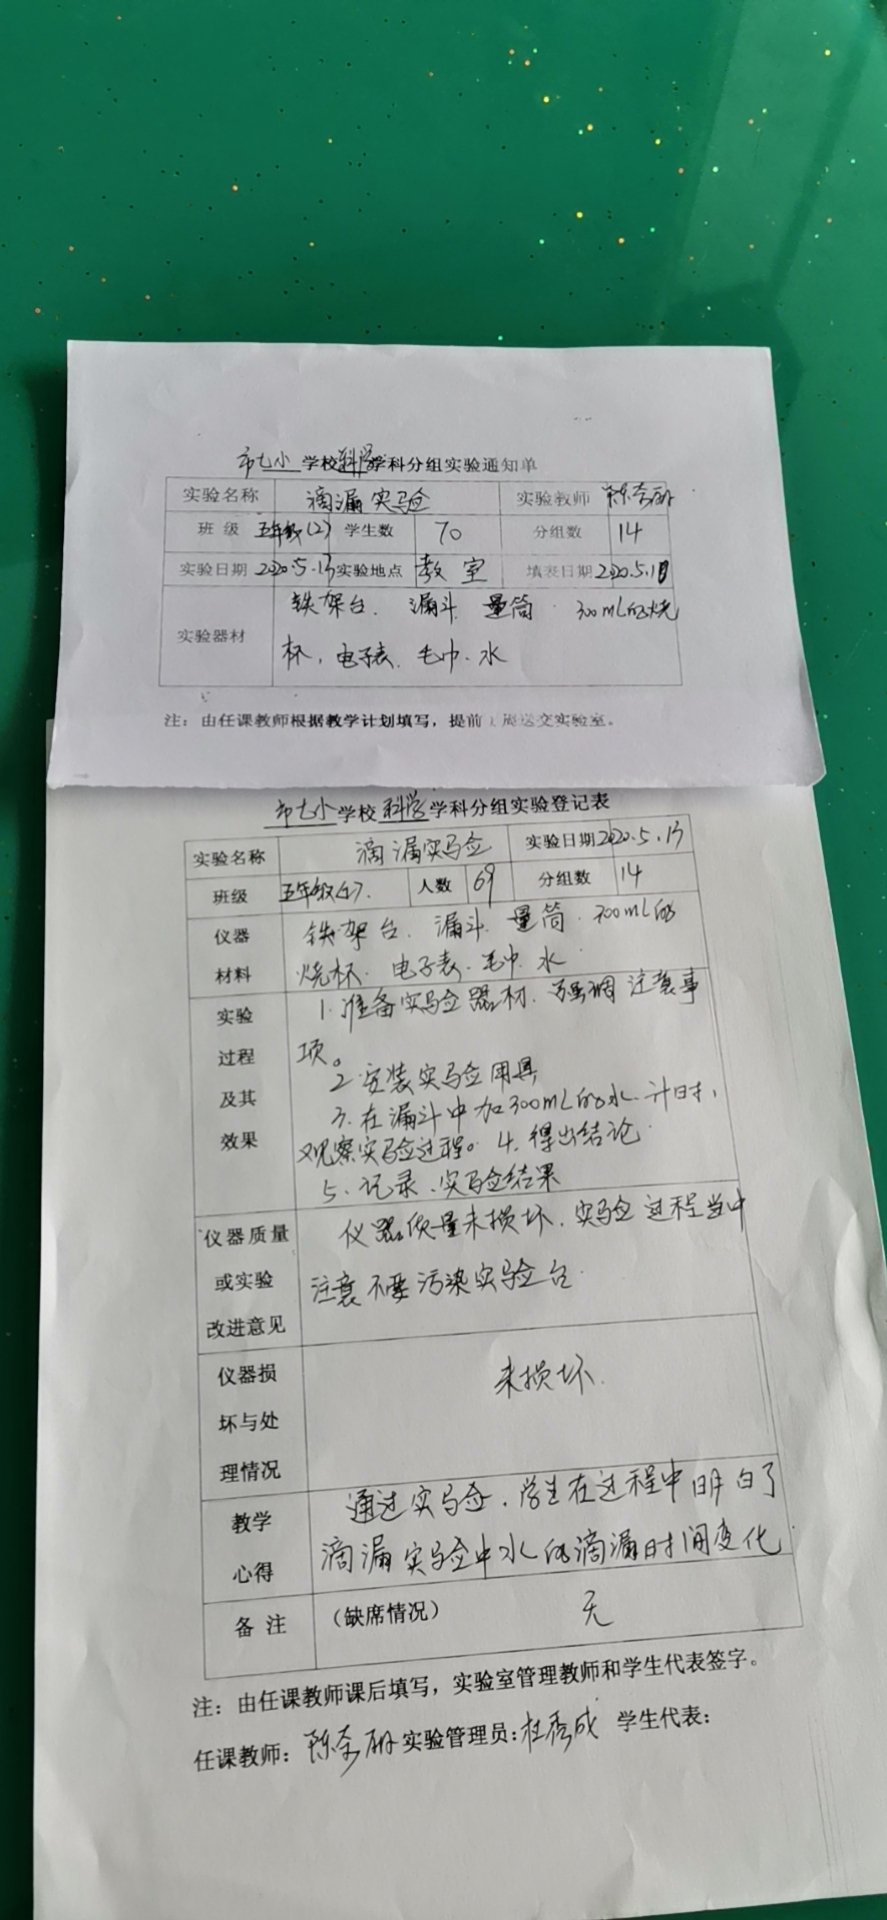 市七小 学校科学学科分组实验通知单
实验名称 滴漏实验 实验教师
班 级 五年级(2) 学生数 70 分组数 14
实验日期 2020.5.13 实验地点 教室 填表日期 2020.5.
铁架台、漏斗、量筒、300mL的烧
实验器材
杯、电子表、毛巾、水
注：由任课教师根据教学计划填写，提前1周送交实验室。
市七小学校 科学 学科分组实验登记表
实验名称 滴漏实验 实验日期 2020.5.13
班级 五年级 人数 69 分组数 14
仪器 铁架台、漏斗、量筒、300mL的
材料 烧杯、电子表、毛巾、水
实验 1.准备实验器材、强调注意事
过程 项。
2.安装实验用具
及其 3.在漏斗中加300mL的水、计时，
效果 观察实验过程。4.得出结论
5.记录、实验结果
仪器质量 仪器质量未损坏、实验过程当中
或实验 注意不要污染实验台
改进意见
仪器损 未损坏.
坏与处
理情况
教学 通过实验、学生在过程中明白了
心得 滴漏实验中水的滴漏时间变化
备 注 （缺席情况） 无
注：由任课教师课后填写，实验室管理教师和学生代表签字。
任课教师： 实验管理员：杜秀成 学生代表：